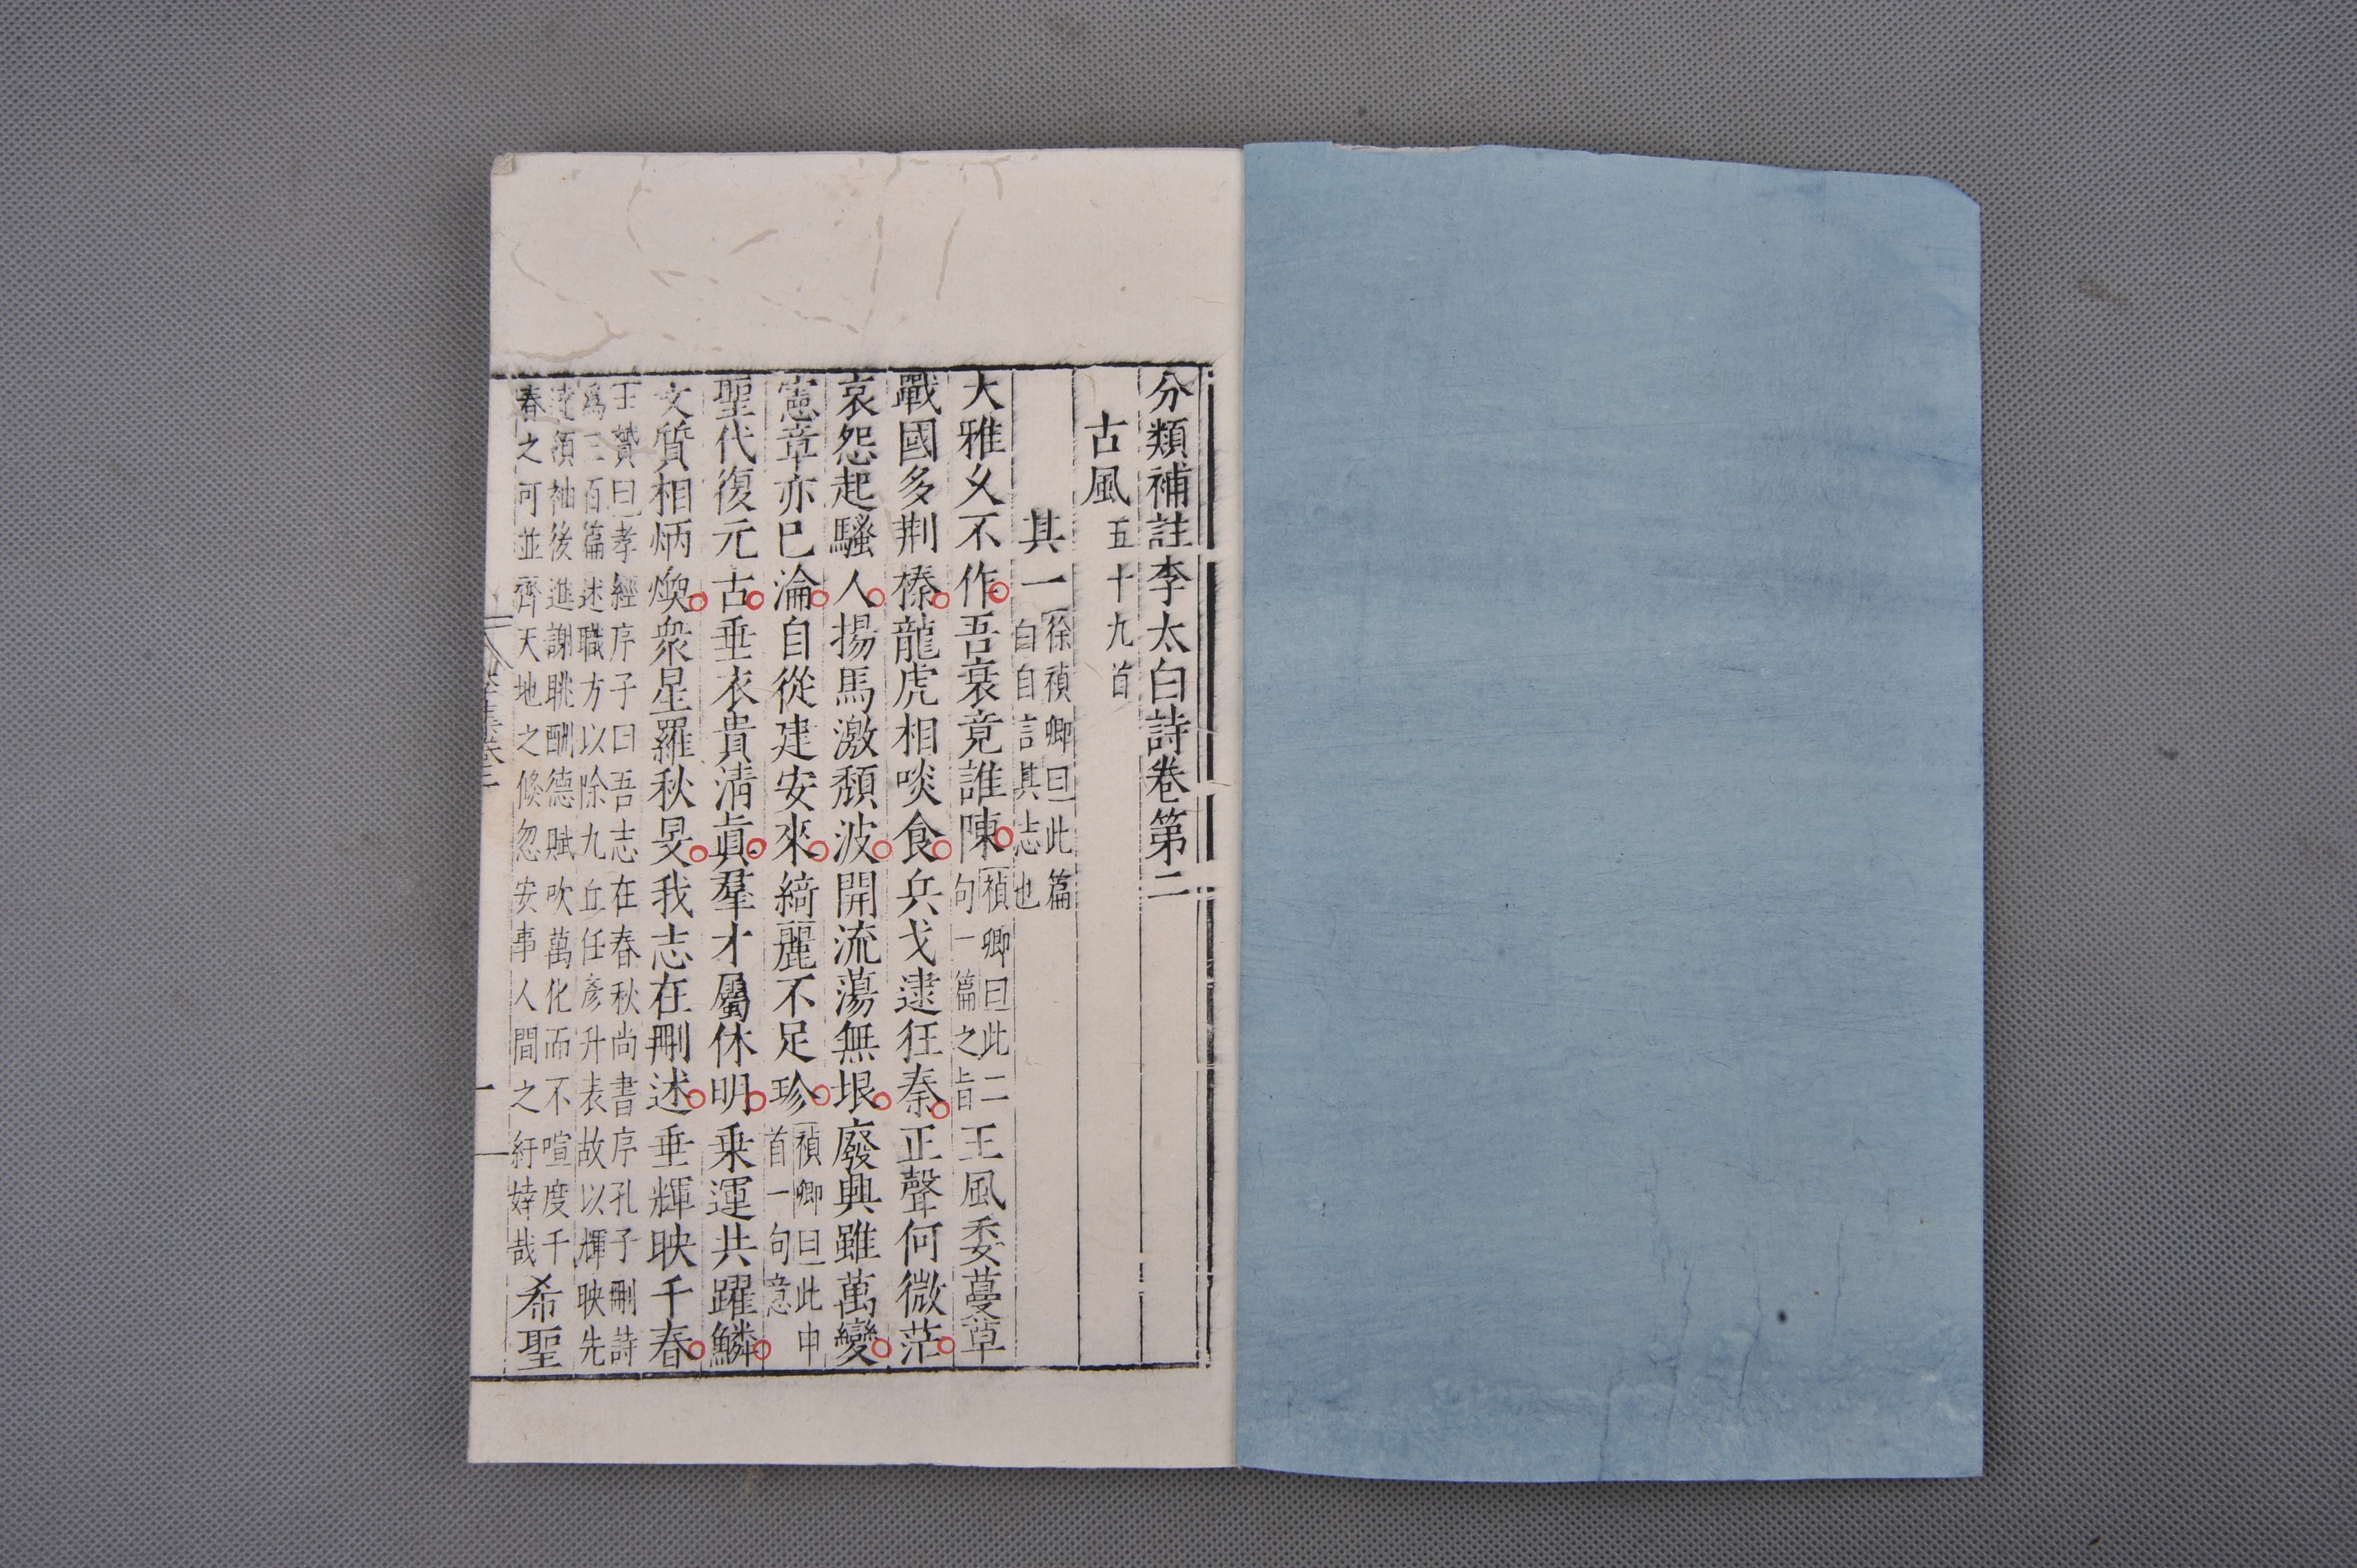 分類補註李太白詩卷第二
古風五十九首
其一徐禎卿曰此篇自自言其志也
大雅乆不作吾衰竟誰陳禎卿曰此二句一篇之旨王風委蔓草
戰國多荆榛龍虎相啖食兵戈逮狂秦正聲何微茫
哀怨起騷人揚馬激頹波開流蕩無垠廢興雖萬變
憲章亦已淪自從建安來綺麗不足珍禎卿曰此申首一句意
聖代復元古垂衣貴清眞羣才屬休明乗運共躍鱗
文質相炳煥衆星羅秋旻我志在刪述垂輝映千春
王贇曰孝經序子曰吾志在春秋尚書序孔子刪詩
爲三百篇述職方以除九丘任彥升表故以輝映先
達領袖後進謝朓酬德賦吹萬化而不喧度千
春之可並齊天地之倐忽安事人間之紆婞哉希聖